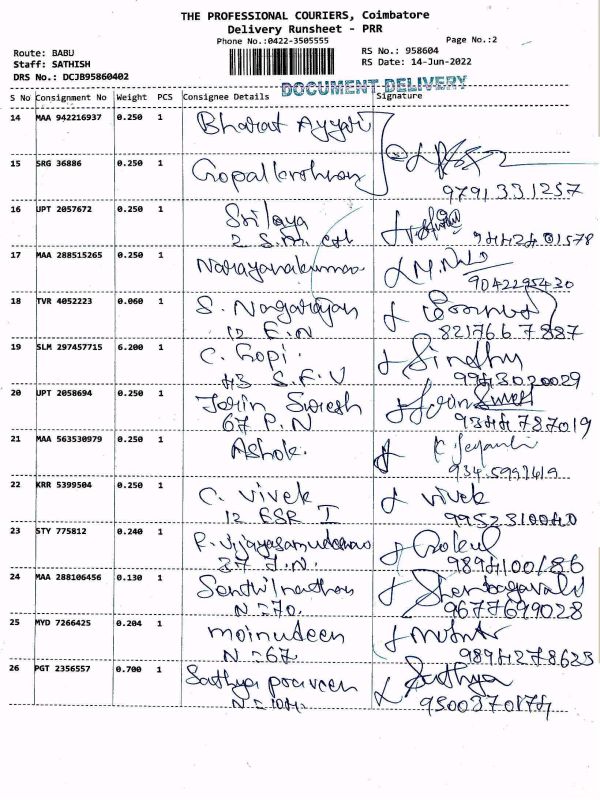 THE PROFESSIONAL COURIERS, Coimbatore
Delivery Runsheet - PRR
Phone No.:0422-3505555
Page No.:2
Route: BABU
RS No.: 958604
Staff: SATHISH
RS Date: 14-Jun-2022
DRS No.: DCJB95860402
DOCUMENT DELIVERY
S No Consignment No Weight PCS Consignee Details Signature
14 MAA 942216937 0.250 1 Bharat Ayyar
15 SRG 36886 0.250 1 Gopalkrishnan
9791331257
16 UPT 2057672 0.250 1 Srilaya
2 S.M.
17 MAA 288515265 0.250 1 Narayanakumaa
9042295430
18 TVR 4052223 0.060 1 S. Nagarajan
12 E.N 8217667887
19 SLM 297457715 6.200 1 C. Gopi. Sindhu
43 S.F.V 9943020029
20 UPT 2058694 0.250 1 Jorin Suresh Jorin Suresh
67 P.N 9344787019
21 MAA 563530979 0.250 1 Ashok.
22 KRR 5399504 0.250 1 C. Vivek Vivek
12 ESR I 9952310040
23 STY 775812 0.240 1 Gokul
37 J.N. 9894100186
24 MAA 288106456 0.130 1 Senthilnathan
N-270. 9677699028
25 MYD 7266425 0.204 1 moinudeen
N-267 9894278623
26 PGT 2356557 0.700 1 Sathya praveen Sathya
9500370174